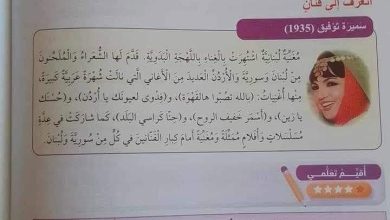 أتعرف إلى فنان
سميرة توفيق (1935)
مُغَنِّيَةٌ لُبْنانِيَّةٌ اشْتُهِرَتْ بِالغِناءِ بِاللَّهْجَةِ البَدَوِيَّةِ. قَدَّمَ لَها الشُّعَراءُ وَالمُلَحِّنونَ
مِنْ لُبْنانَ وَسوريَّةَ وَالأُرْدُنِّ العَديدَ مِنَ الأَغاني الَّتي نالَتْ شُهْرَةً عَرَبِيَّةً كَبيرَةً،
مِنْها أُغْنِياتُ: (بالله تصُبّوا هالقهْوَة)، و(فِدْوى لعيونِك يا أُرْدُن)، و(حُسْنَك
يا زين)، و(أَسْمَر خَفيف الروح)، و(حِنّا كَراسي البَلَد)، كَما شارَكَتْ في عِدَّةِ
مُسَلْسَلاتٍ وَأَفْلامٍ مُمَثِّلَةً وَمُغَنِّيَةً أَمامَ كِبارِ الفَنّانينَ في كُلٍّ مِنْ سورِيَّةَ وَلُبْنانَ.
أُقَيِّمُ تَعَلُّمي